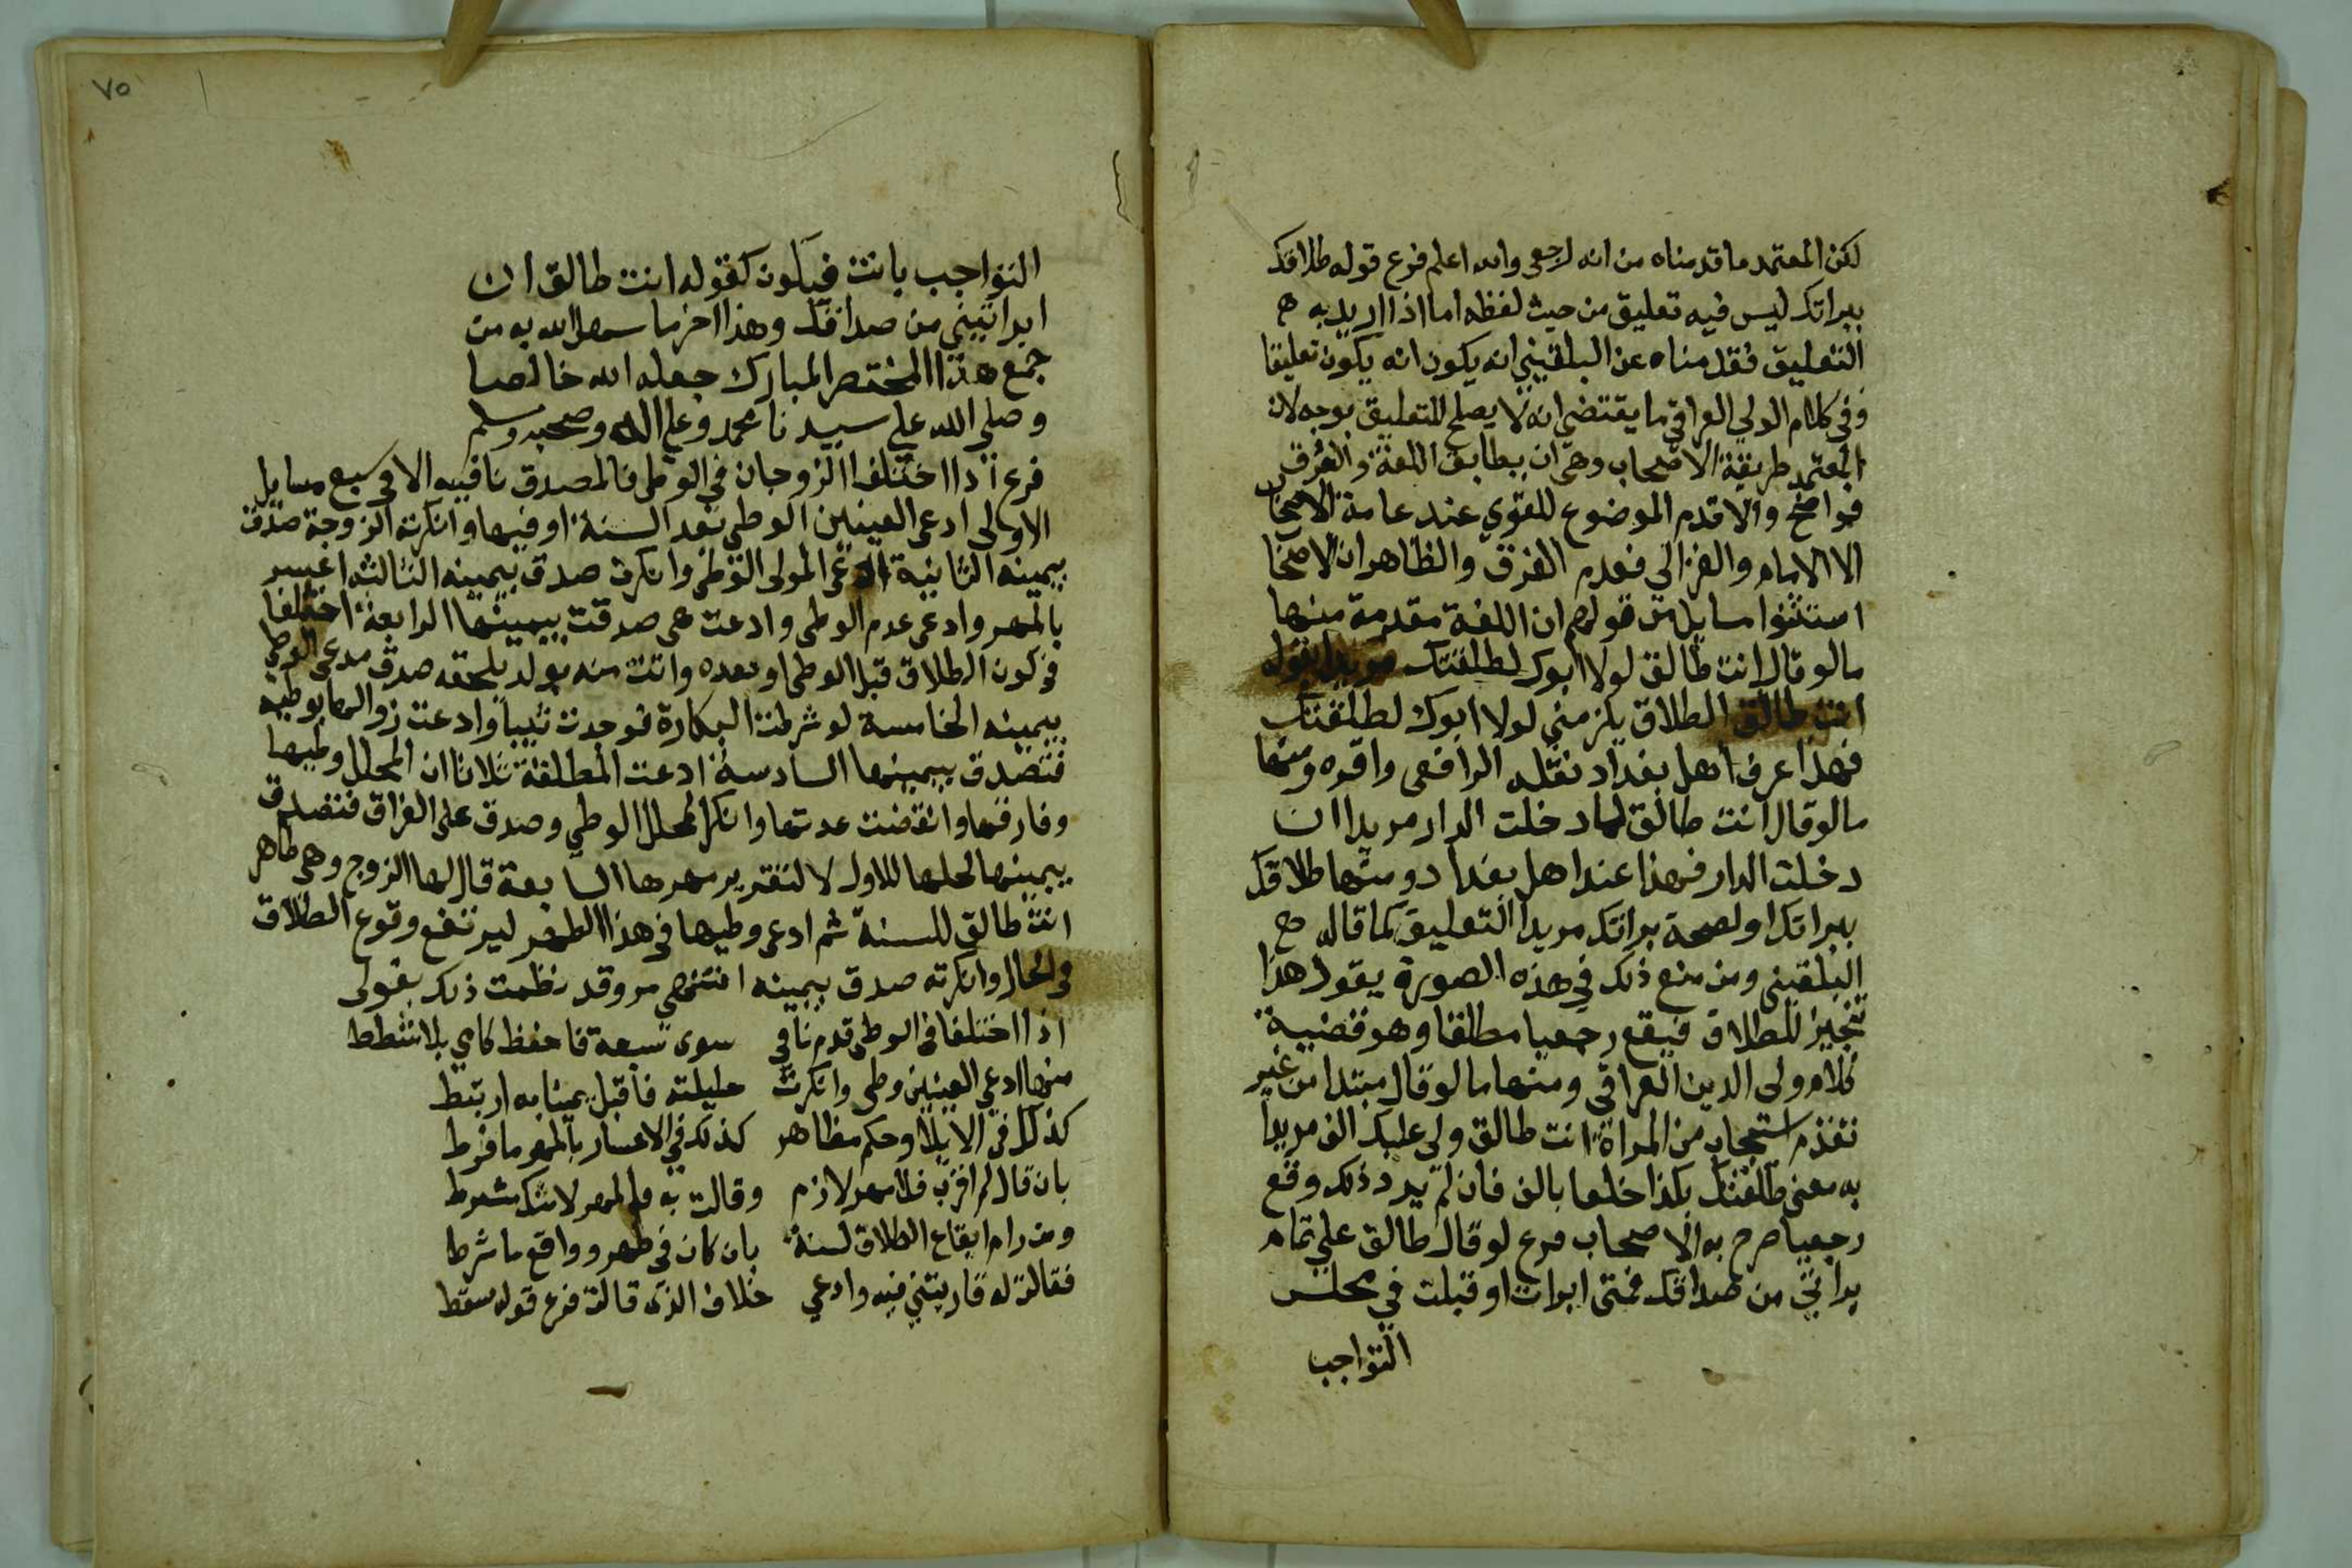 لكن المعتمد ما قدمناه من انه رجعي والله اعلم فرع قوله طلاقك
ببراتك ليس فيه تعليق من حيث لفظه اما اذا اريد به
التعليق فقدمناه عن البلقيني انه يكون انه يكون تعليقا
وفي كلام الولي العراقي ما يقتضي انه لا يصلح للتعليق بوجه لان
المعتمد طريقة الاصحاب وهي ان يطابق اللغة والعرف
فواضح والا قدم الموضوع للغوي عند عامة الاصحاب
الا الامام والغزالي فعدم الفرق والظاهر ان الاصحا
استثنوا مسايل من قولهم ان اللغة مقدمة منها
ما لو قال انت طالق لولا ابوك لطلقتك مريدا بقوله
انت طالق الطلاق يلزمني لولا ابوك لطلقتك
فهذا عرف اهل بغداد نقله الرافعي واقره ومنها
ما لو قال انت طالق لما دخلت الدار مريدا ان
دخلت الدار فهذا عند اهل بغداد ومنها طلاقك
ببراتك او لصحة براتك مريدا التعليق كما قاله
البلقيني ومن منع ذلك في هذه الصورة يقول هذا
تنجيز للطلاق فيقع رجعيا مطلقا وهو قضية
كلام ولي الدين العراقي ومنها ما لو قال مبتدا من غير
تقدم استيجاب من المراة انت طالق ولي عليك الف مريدا
به معنى طلقتك بكذا خلعا بالف فان لم يرد ذلك وقع
رجعيا صرح به الاصحاب فرع لو قال طالق علي تمام
براتي من صداقك فمتى ابرات او قبلت في مجلس
التواجب
٧٥
التواجب بانت فيكون كقوله انت طالق ان
ابراتيني من صداقك وهذا اخر ما سهل الله به من
جمع هذا المختصر المبارك جعله الله خالصا
وصلي الله علي سيدنا محمد وعلي اله وصحبه وسلم
فرع اذا اختلف الزوجان في الوطي فالمصدق نافيه الا في سبع مسايل
الاولى ادعى العينين الوطي بعد السنة او فيها وانكرت الزوجة صدق
بيمينه الثانية ادعى المولى الوطي وانكرت صدق بيمينه الثالثه اعسر
بالمهر وادعى عدم الوطي وادعت هي صدقت بيمينها الرابعة اختلفا
في كون الطلاق قبل الوطي او بعده واتت منه بولد يلحقه صدق مدعي الوطي
بيمينه الخامسة لو شرطت البكارة فوجدت ثيبا وادعت زوالها بوطيه
فتصدق بيمينها السادسة ادعت المطلقة ثلاثا ان المحلل وطيها
وفارقها وانقضت عدتها وانكر المحلل الوطي وصدق على الفراق فتصدق
بيمينها لحلها للاول لا لتقرير مهرها السابعة قال لها الزوج وهي طاهر
انت طالق للسنة ثم ادعى وطيها في هذا الطهر ليرتفع وقوع الطلاق
في الحال وانكرته صدق بيمينه انتهى مر وقد نظمت ذلك بقولي
اذا اختلفا في الوطي قدم نافي سوى سبعة فاحفظ كلامي بلا شطط
منها ادعي العينين وطي وانكرت حليلته فاقبل يمينا به ارتبط
كذلك في الايلا وحكم مظاهر كذلك في الاعسار بالمهر ما فرط
بان قال لم اقرب فلا مهر لازم وقالت به فلي المهر لا شك مشترط
ومن رام ايقاع الطلاق لسنة بان كان في طهر وواقع ما شرط
فقالت له قاربتني فيه وادعي خلاف الذي قالت فرع قوله سقط